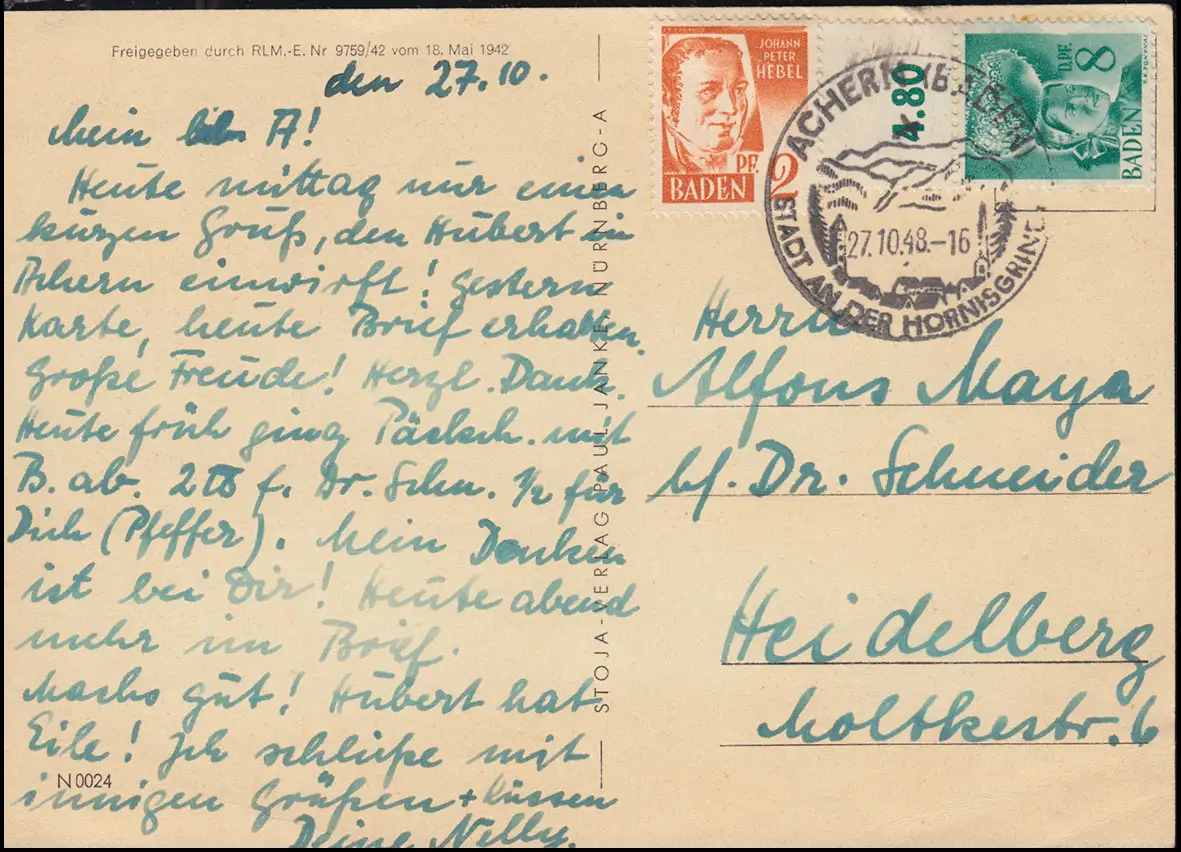 Freigegeben durch RLM.-E. Nr 9759/42 vom 18. Mai 1942
den 27.10.
Mein lieb A!
Heute mittag nur einen
kurzen Gruß, den Hubert in
Achern einwirft! Gestern
Karte, heute Brief erhalten.
Große Freude! Herzl. Dank.
Heute früh ging Päckch. mit
B. ab. 2 ℔ f. Dr. Schn. 1/2 für
Dich (Pfeffer). Mein Denken
ist bei Dir! Heute abend
mehr im Brief.
Machs gut! Hubert hat
Eile! Ich schließe mit
innigen Grüßen + Küssen
Deine Nelly.
N 0024
STOJA-VERLAG PAUL JANKE, NÜRNBERG-A
JOHANN
PETER
HEBEL
PF. 2
BADEN
4.80
D.PF. 8
BADEN
ACHERN (BADEN)
27.10.48.-16
STADT AN DER HORNISGRINDE
Herrn
Alfons Maya
b/. Dr. Schneider
Heidelberg
Moltkestr. 6